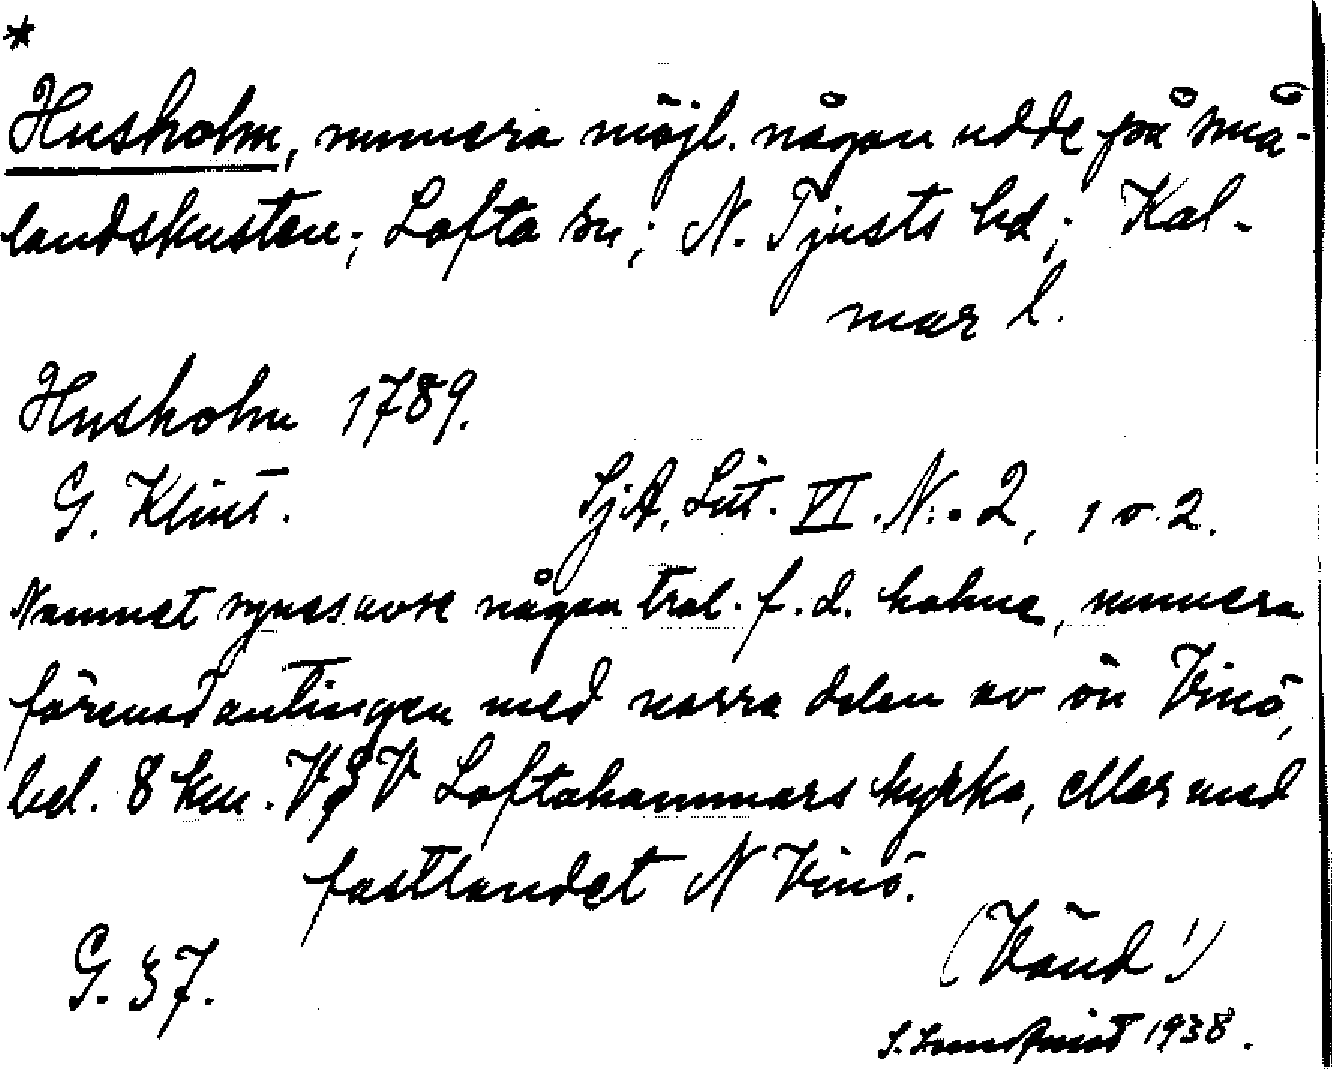 *
Husholm, numera möjl. någon udde på Små-
landskusten; Lofta sn; N. Tjusts hd; Kal-
mar l.
Husholm 1789.
G. Klint. SjA, Litt. VI. N:o 2, 1 o. 2.
Namnet synes avse någon trol. f. d. holme, numera
förenad antingen med norra delen av ön Vinö,
bel. 8 km. VSV Loftahammars kyrka, eller med
fastlandet N Vinö.
(Vänd!)
G. 37.
S. Lundqvist 1938.